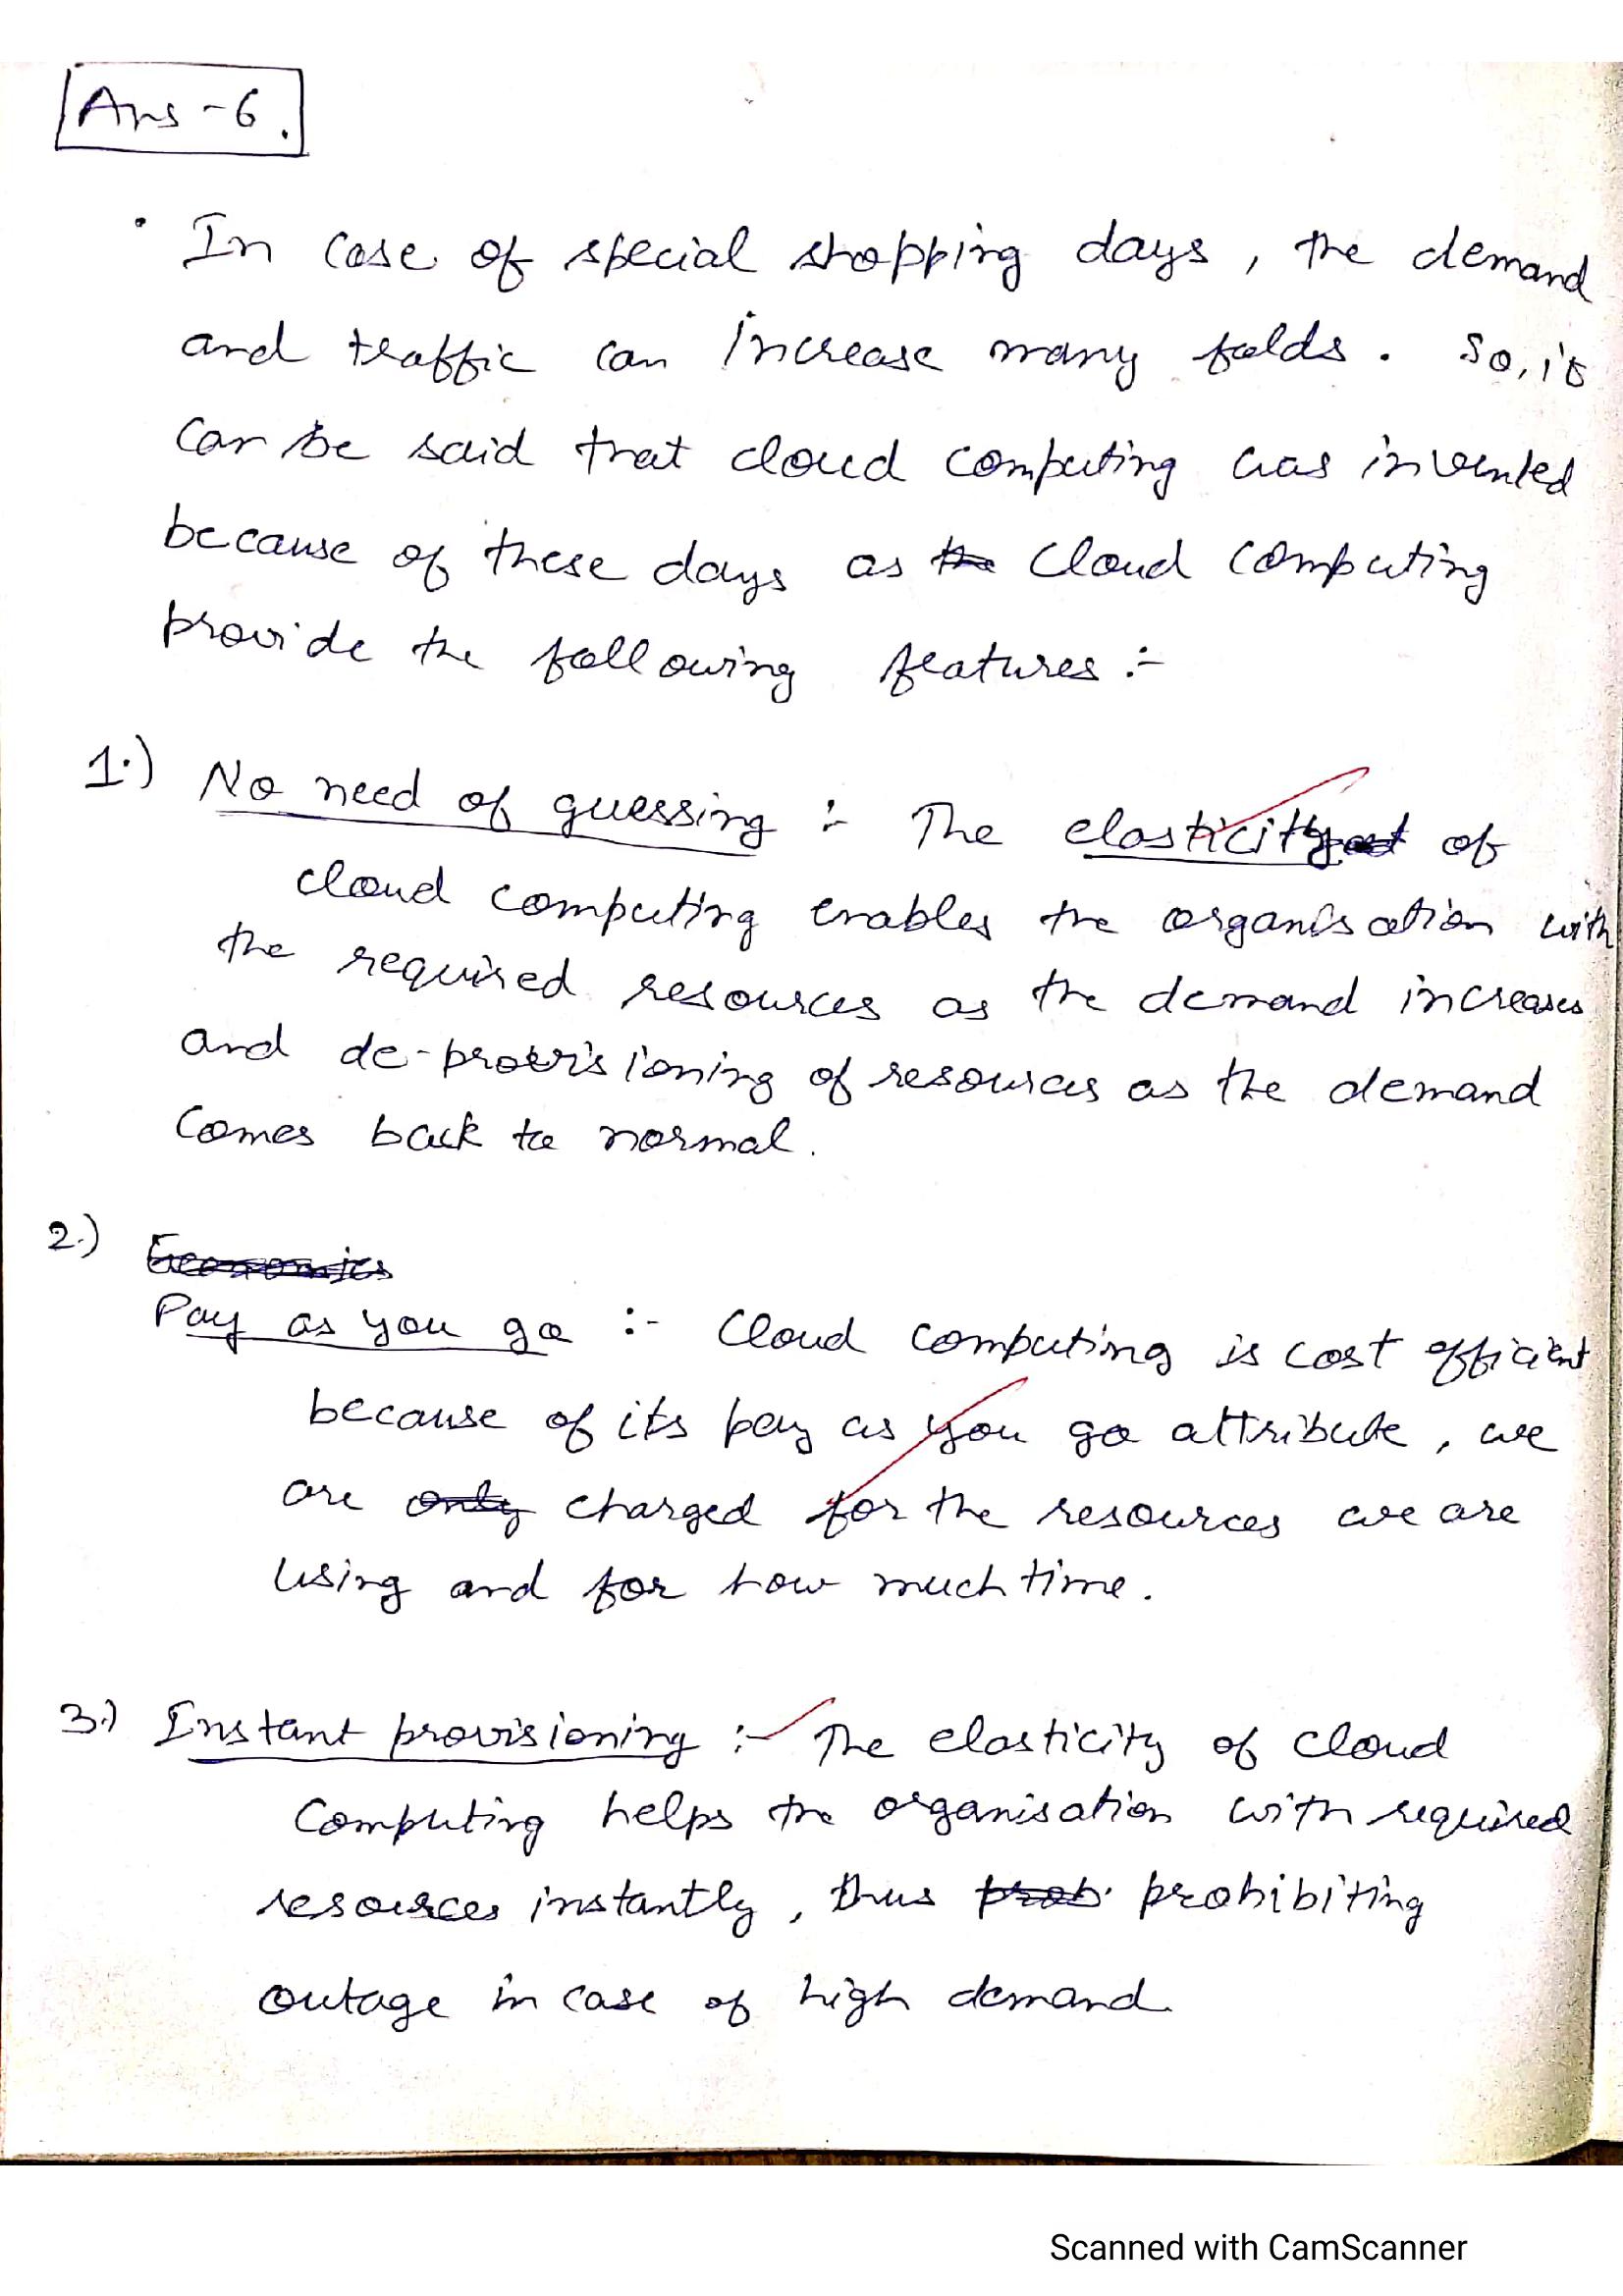 Ans - 6.
• In case of special shopping days, the demand
and traffic can increase many folds. So, it
can be said that cloud computing was invented
because of these days as the cloud computing
provide the following features :-
1.) No need of guessing :- The elasticity of
cloud computing enables the organisation with
the required resources as the demand increases
and de-provisioning of resources as the demand
comes back to normal.
2.) Economics
Pay as you go :- Cloud computing is cost efficient
because of its pay as you go attribute, we
are only charged for the resources we are
using and for how much time.
3.) Instant provisioning :- The elasticity of cloud
computing helps the organisation with required
resources instantly, thus prob prohibiting
outage in case of high demand
Scanned with CamScanner